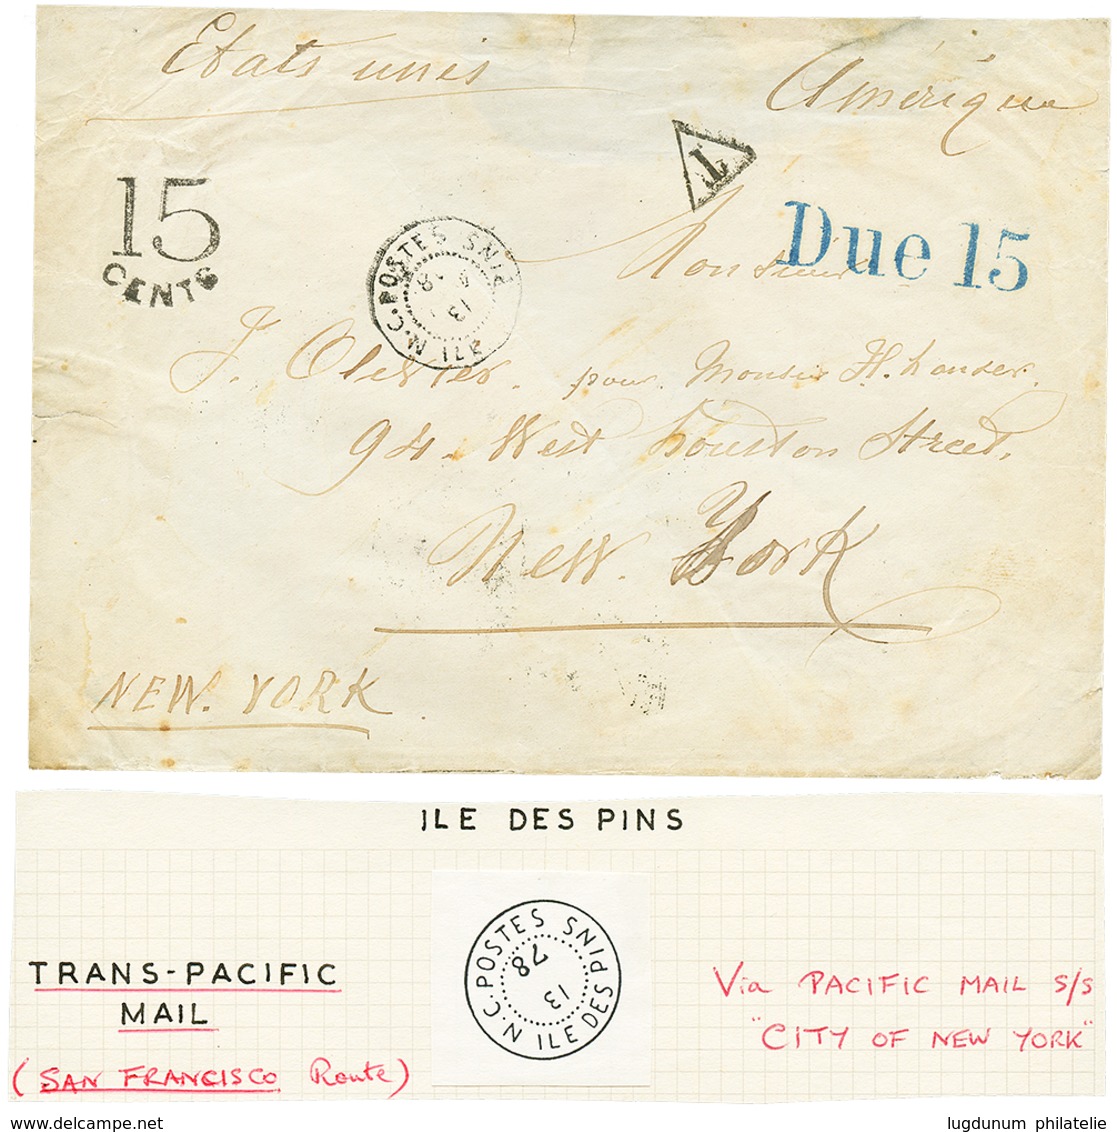 Etats unis Amérique
T
15
CENTS
Due 15
N.C. POSTES PINS
13
Monsieur
J. Olivier. pour Monsieur H.
94. West Houston Street.
New. York
NEW. YORK
ILE DES PINS
N.C. POSTES ILE DES PINS
78
13
TRANS-PACIFIC
MAIL
(SAN FRANCISCO Route)
Via PACIFIC MAIL S/S
"CITY OF NEW YORK"
lugdunum philatelie